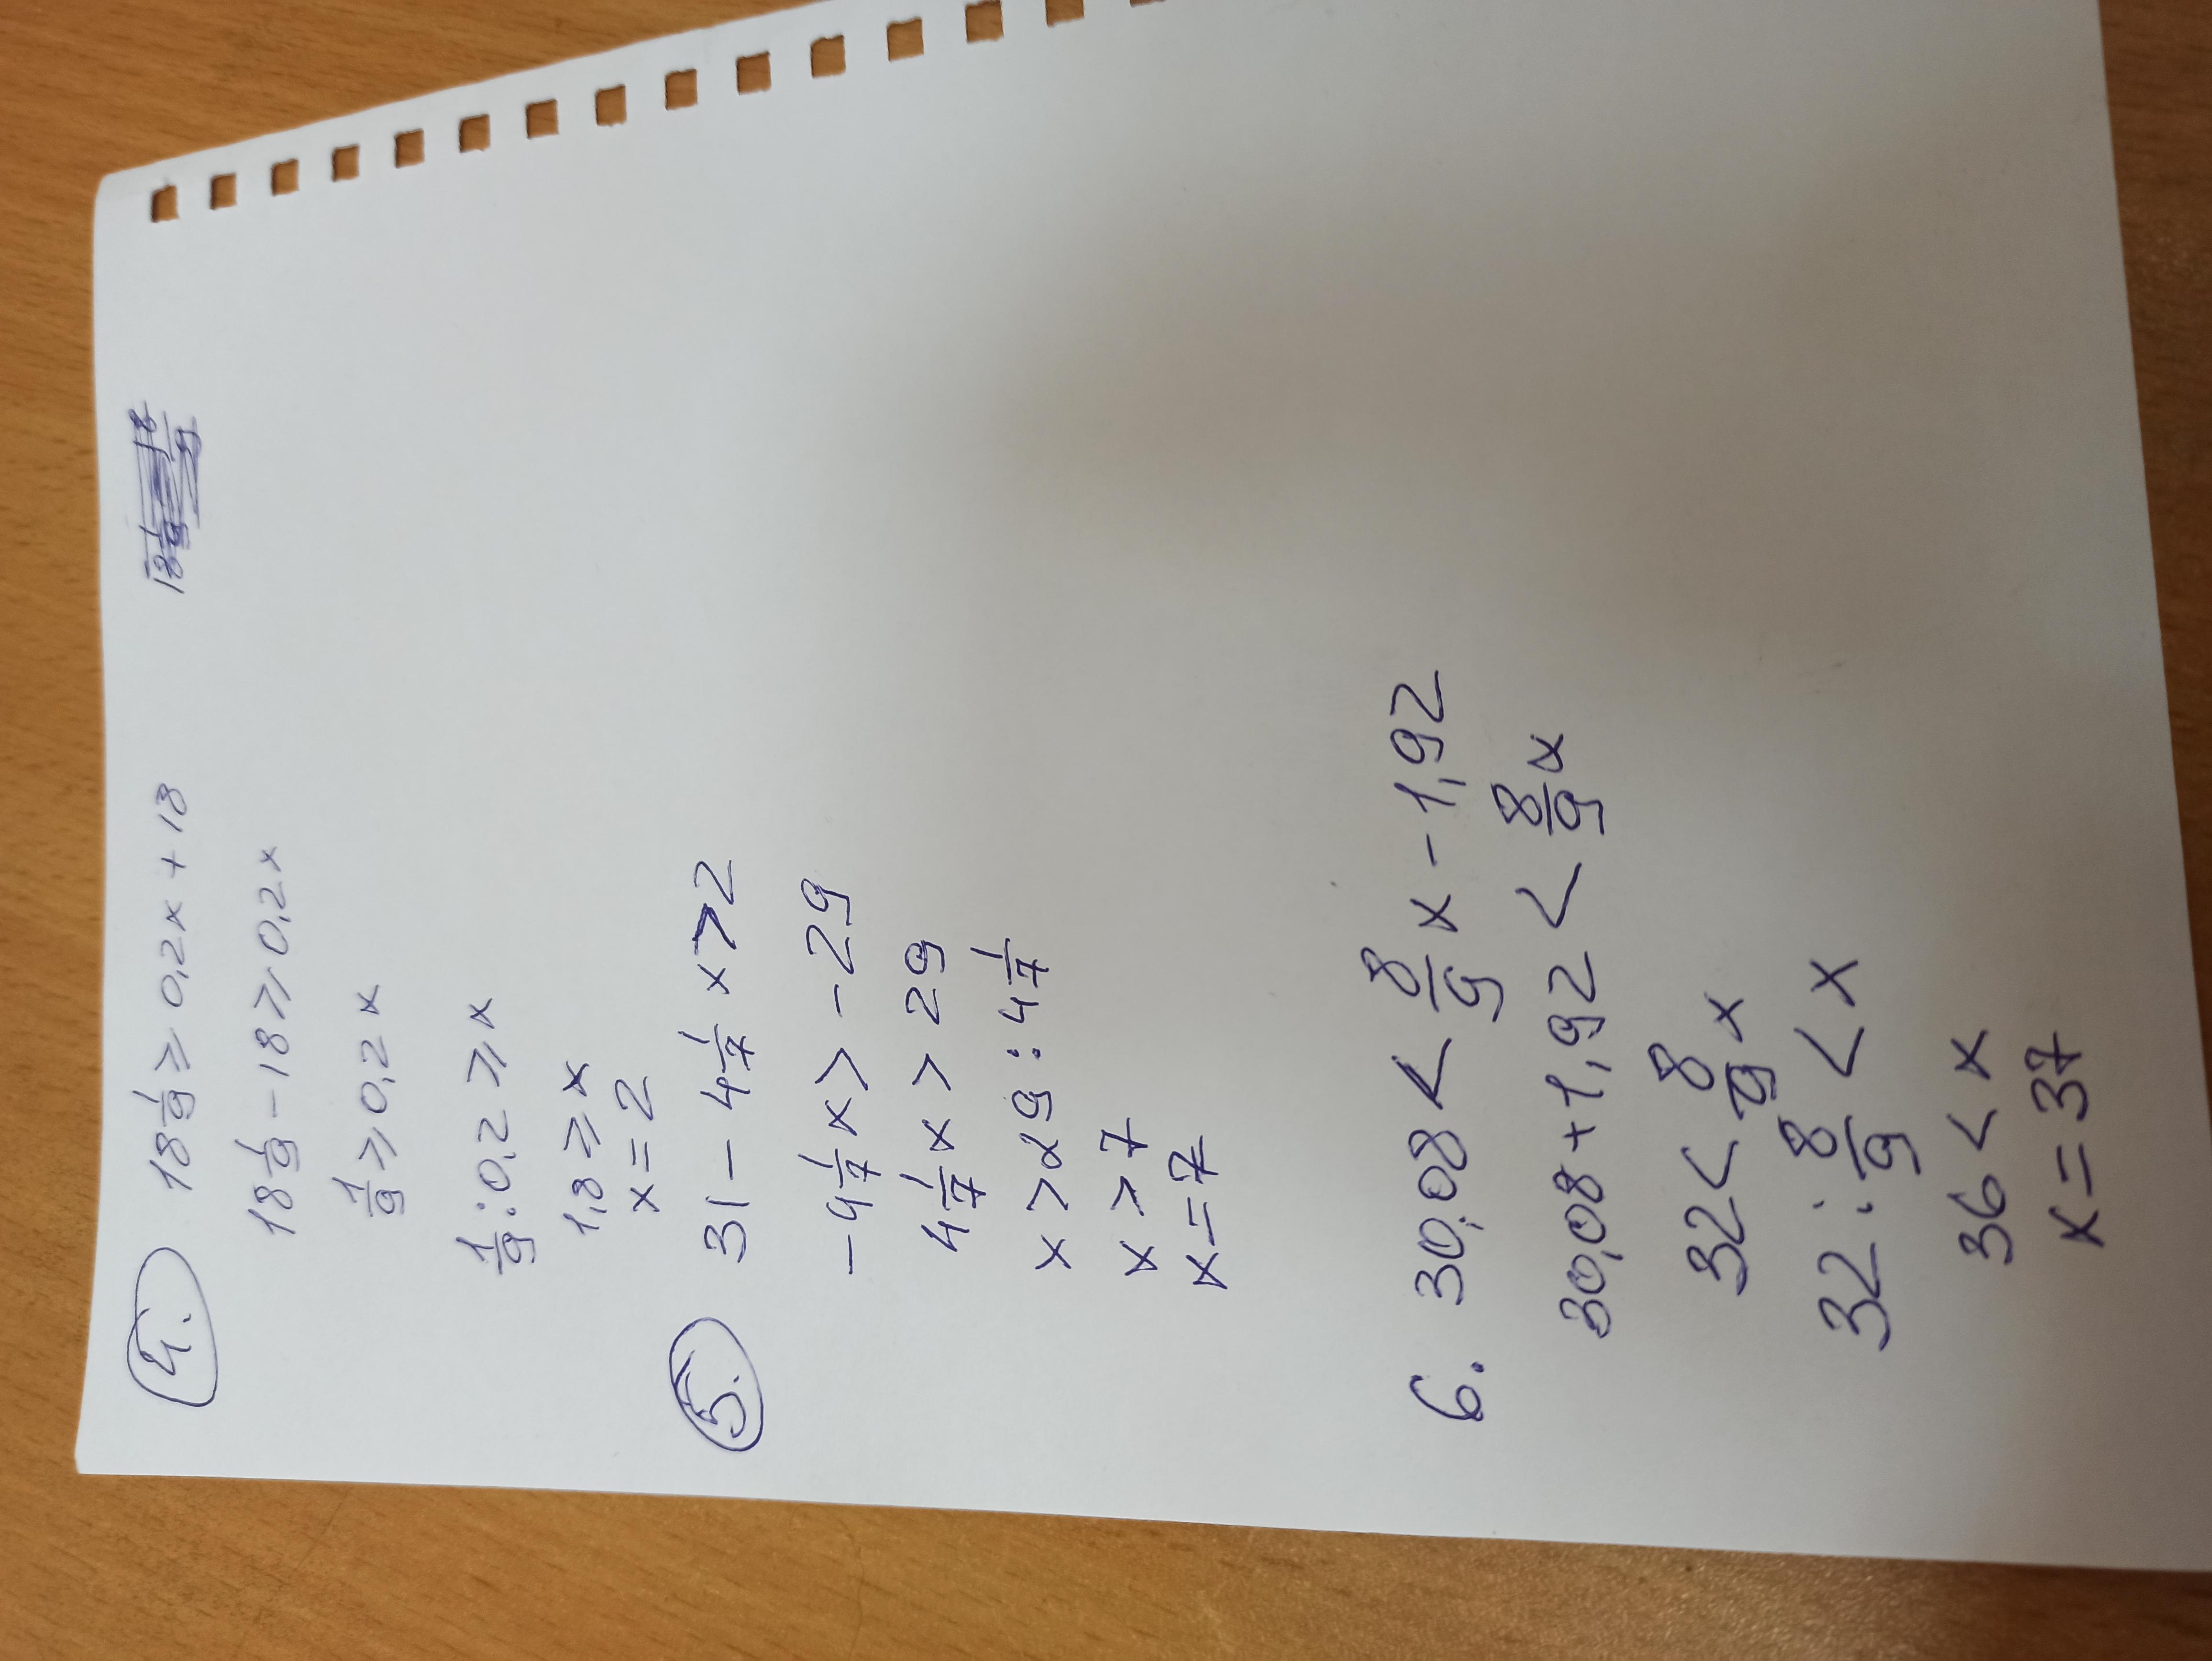 4. 18 1/9 ≥ 0,2x + 18
18 1/9 - 18 ≥ 0,2x
1/9 ≥ 0,2x
1/9 : 0,2 ≥ x
1,8 ≥ x
x = 2
5. 31 - 4 1/7 x > 2
-4 1/7 x > -29
4 1/7 x > 29
x > 29 : 4 1/7
x > 7
x = 7
6. 30,08 < 8/9 x - 1,92
30,08 + 1,92 < 8/9 x
32 < 8/9 x
32 : 8/9 < x
36 < x
x = 37